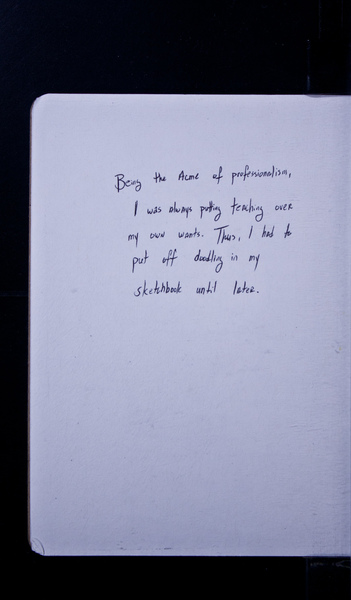 Being the Acme of professionalism,
I was always putting teaching over
my own wants. Thus, I had to
put off doodling in my
sketchbook until later.